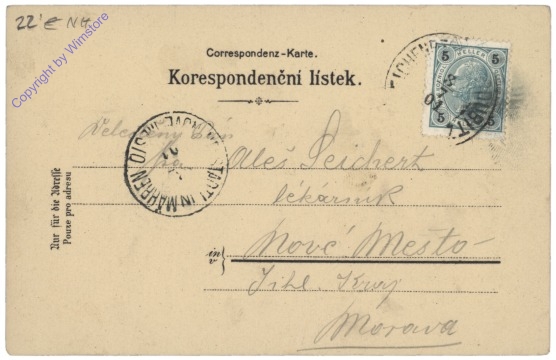 22' € NG
Copyright by Wimstore
Correspondenz-Karte.
Korespondenční lístek.
5 HELLER 5
5 5
Aleš Seichert
lékárník
Nur für die Adresse
Pouze pro adresu
in
v
Nové Město
Jihl. Kraj
Morava
STADTL IN MÄHREN
MĚSTO